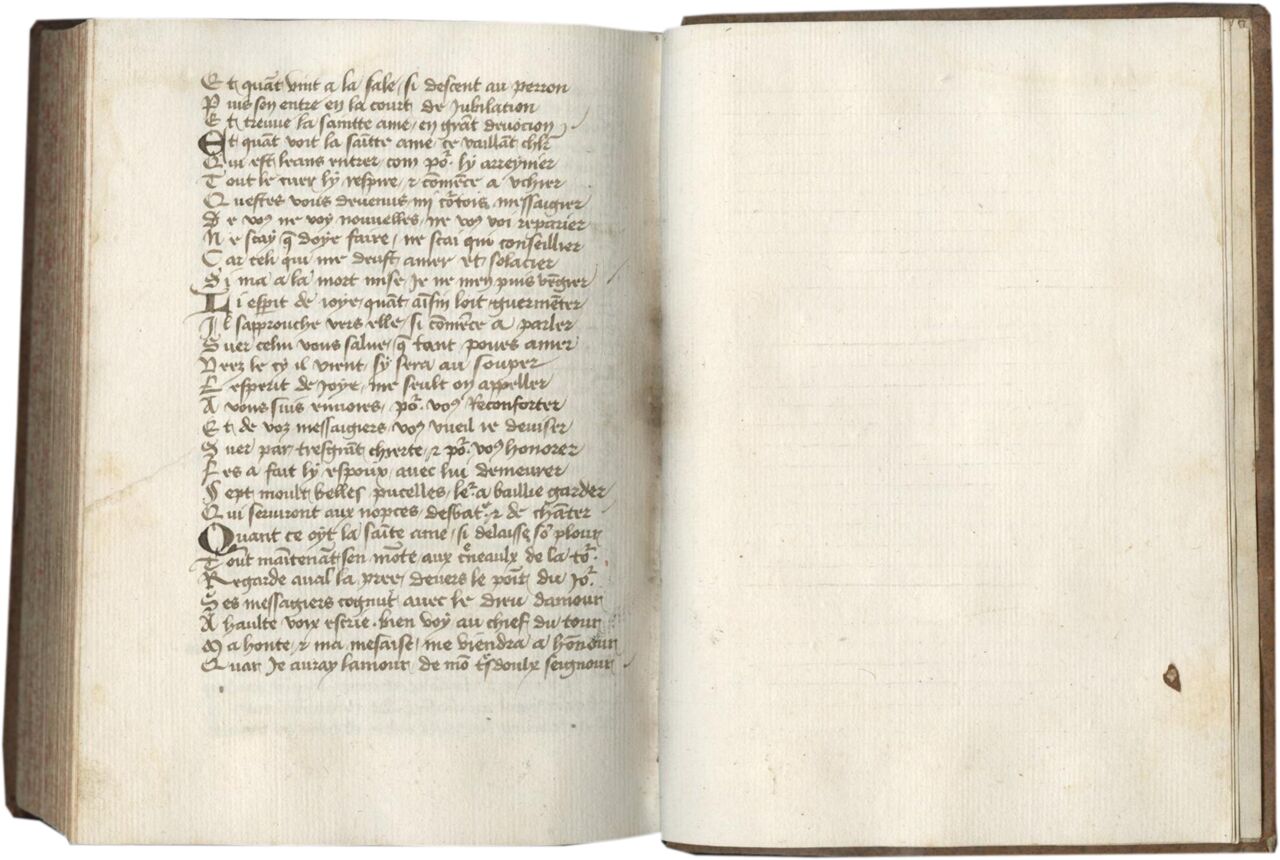 Et quāt vint a la sale si descent au perron
Puis son entre en la court de Jubilation
Et treuue la saintte ame en grāt deuocion
Et quāt voit la saītte ame ce vaillāt chlr
Qui est leans entrer com po͛ ly arreynier
Tout le cuer ly respire ⁊ cōmēce a uchier
Questes vous deuenus mi co͛tois messaigier
De voꝰ ne voy nouuelles ne voꝰ voi reparier
Ne scay q̄ doye faire ne scai qui conseillier
Car celi qui me deust amer et solacier
Si ma a la mort mise Je ne men puis vēgier
Li esperit de ioye quāt aīsin loit guermēter
Il sapprouche vers elle si cōmēce a parler
Suer celui vous salue q̄ tant poues amer
Veez le cy il vient sy sera au souper
Lesperit de Joye me seult on appeller
A vous suis enuoies po͛ voꝰ Reconforter
Et de voz messaigiers voꝰ vueil ie deuiser
Suer par tresgrāt chierte ⁊ po͛ voꝰ honorer
Les a fait ly espoux auec lui demeurer
Sept moult belles pucelles le͛ a baillie garder
Qui seruiront aux nopces ⁊ de chāter
Quant ce oyt la saīte ame si delaisse sō plour
Tout maītenāt sen mōte aux c͛neaulx de la to͛
Regarde aual la pree deuers le poīt du Jo͛
Ses messagiers cognut auec le dieu damour
A haulte voix escrie bien voy au chief du tour
Ma honte ⁊ ma mesaise me viendra a hōnour
Quar Je auray lamour de mō t͛sdoulx seignour